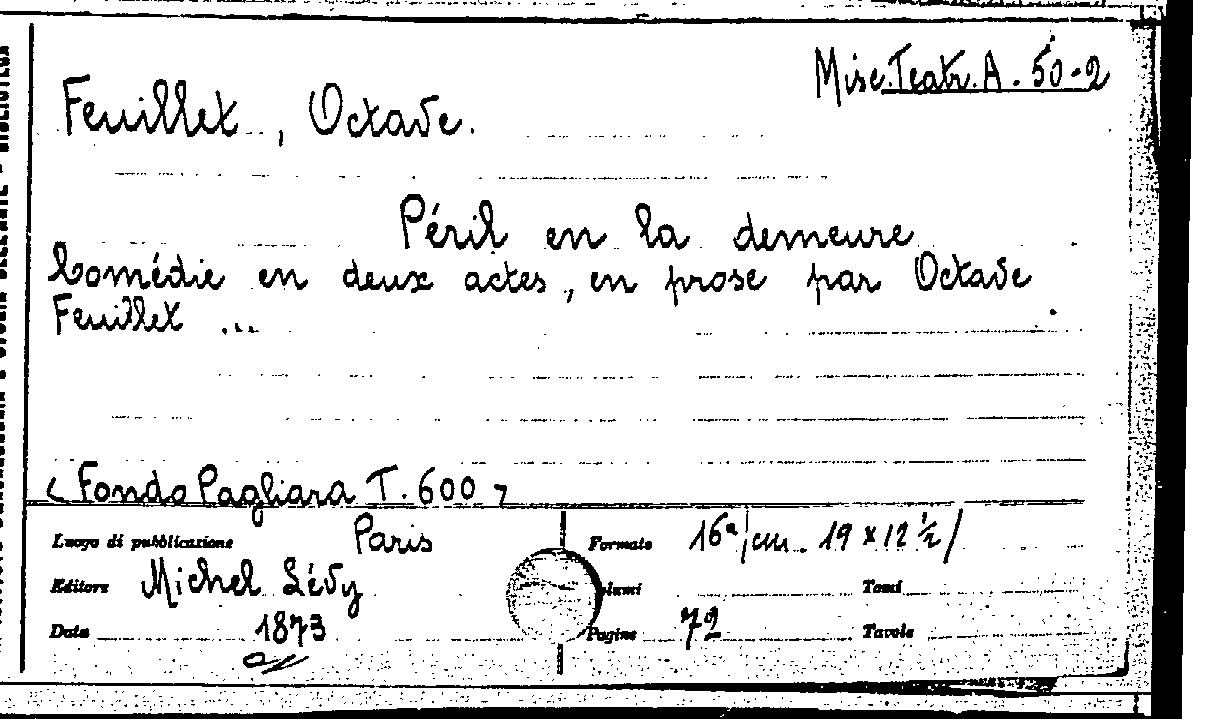 Misc. Teatr. A. 50-2
Feuillet, Octave.
Péril en la demeure
Comédie en deux actes, en prose par Octave
Feuillet ...
(Fondo Pagliara T. 600)
Luogo di pubblicazione Paris
Formato 16ª/cm. 19 x 12 ½/
Editore Michel Lévy
Tomi
Data 1873
Pagine 72
Tavole